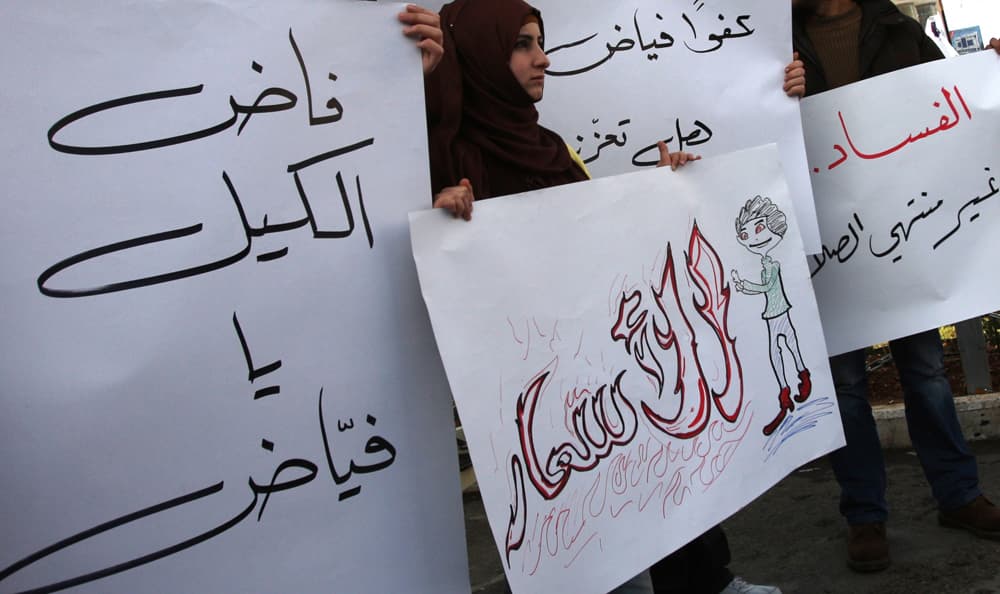 فاض
الكيل
يا
فيّاض
عفوًا فياض
هل تعزّز
الأسعار
الفساد.
غير منتهي الصلا